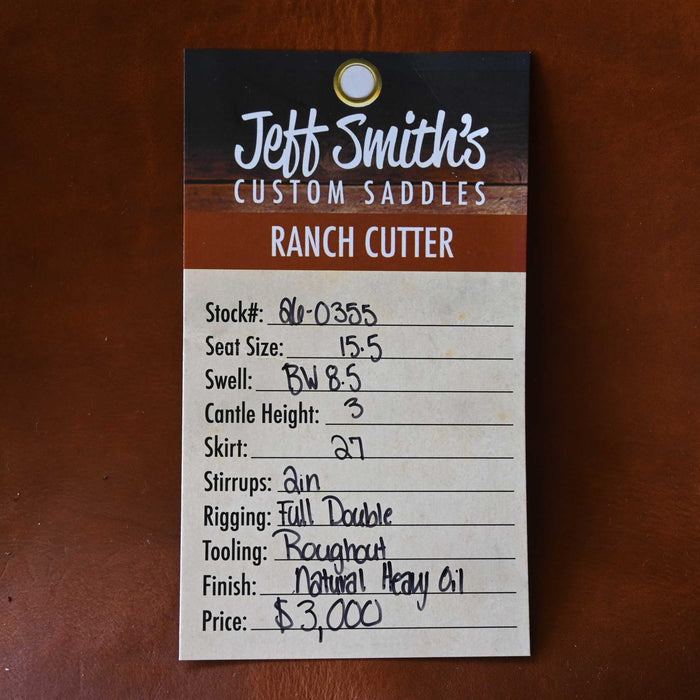 Jeff Smith's
CUSTOM SADDLES
RANCH CUTTER
Stock#: 26-0355
Seat Size: 15.5
Swell: BW 8.5
Cantle Height: 3
Skirt: 27
Stirrups: 2in
Rigging: Full Double
Tooling: Roughout
Finish: Natural Heavy Oil
Price: $3,000